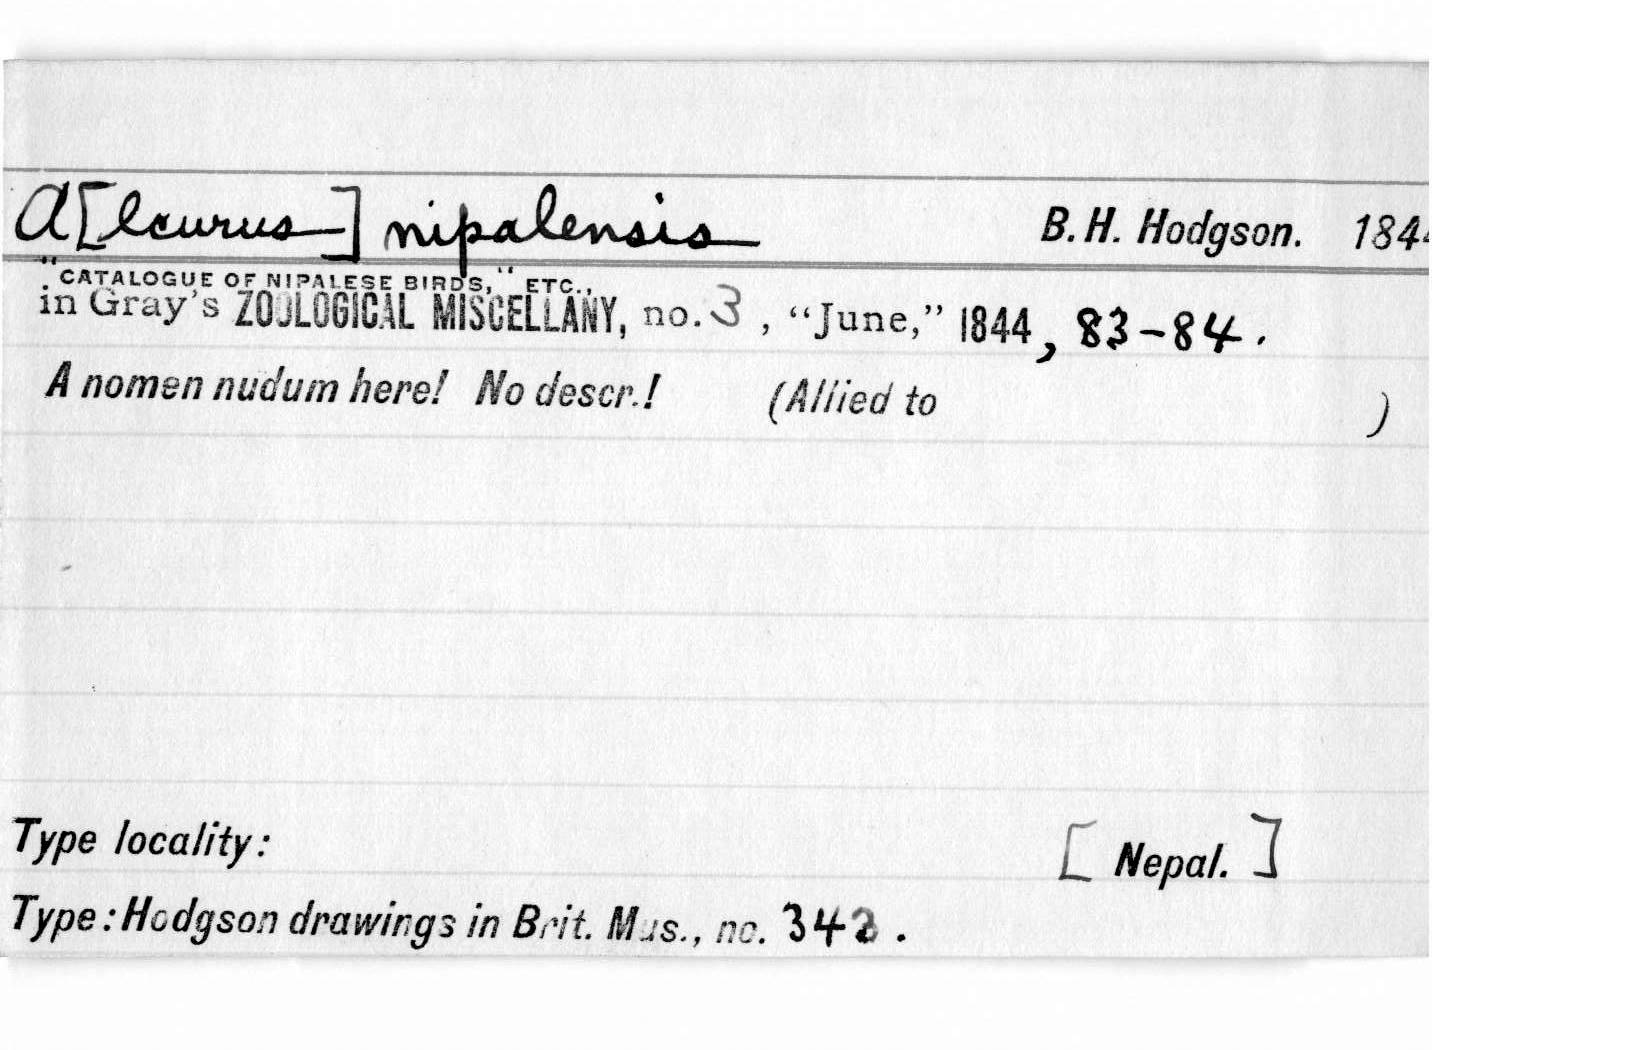 A[lcurus] nipalensis B. H. Hodgson. 184
"CATALOGUE OF NIPALESE BIRDS," ETC.,
in Gray's ZOOLOGICAL MISCELLANY, no. 3, "June," 1844, 83-84.
A nomen nudum here! No descr.! (Allied to )
Type locality: [Nepal.]
Type: Hodgson drawings in Brit. Mus., no.